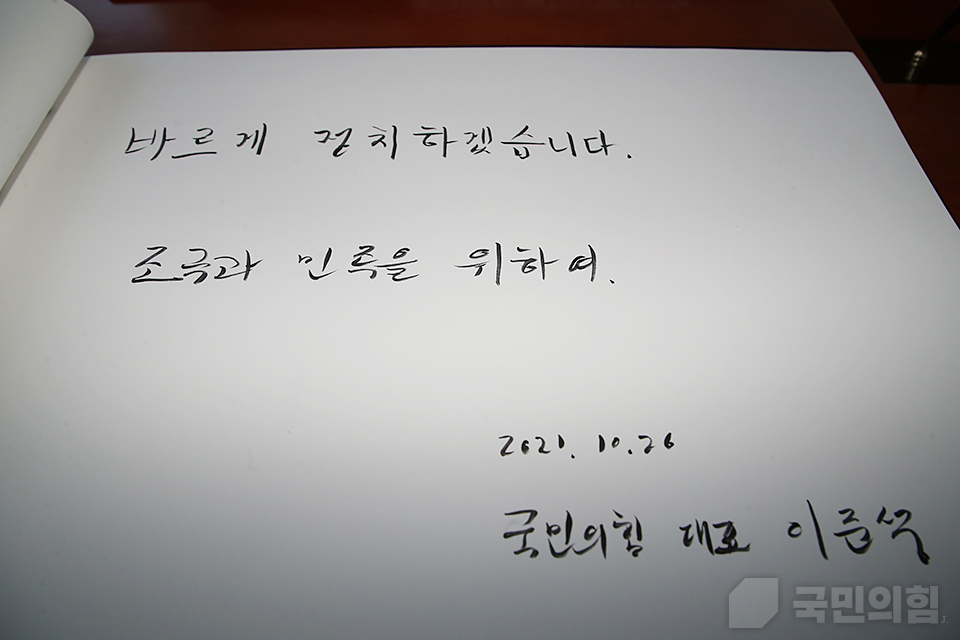 바르게 정치하겠습니다.
조국과 민족을 위하여.
2021. 10. 26
국민의힘 대표 이준석
국민의힘